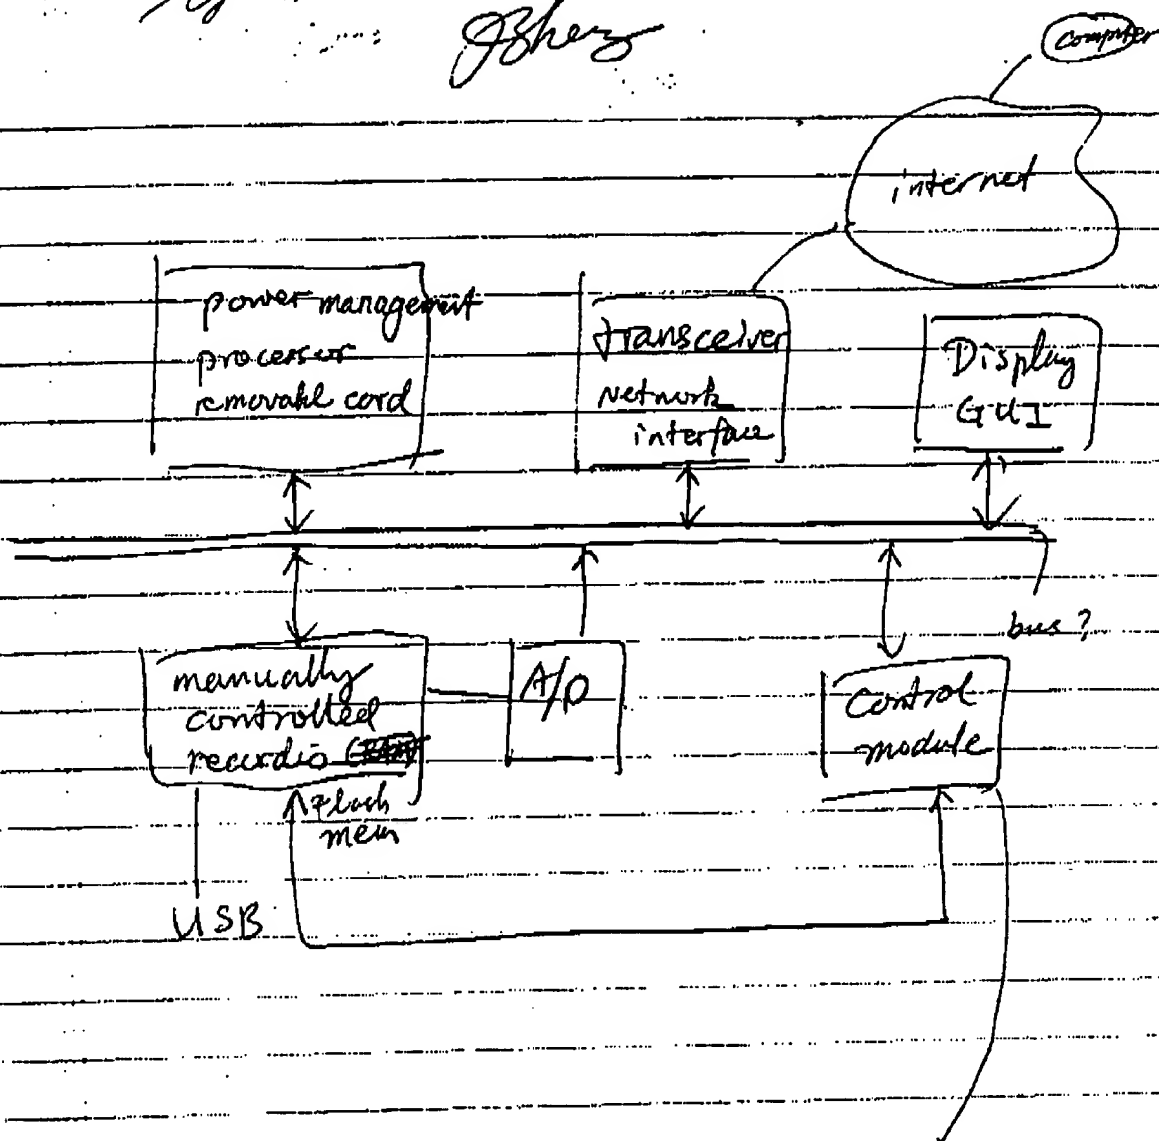 computer
internet
power management
processor
removable card
transceiver
network
interface
Display
GUI
bus ?
manually
controlled
A/D
control
module
flash
mem
USB